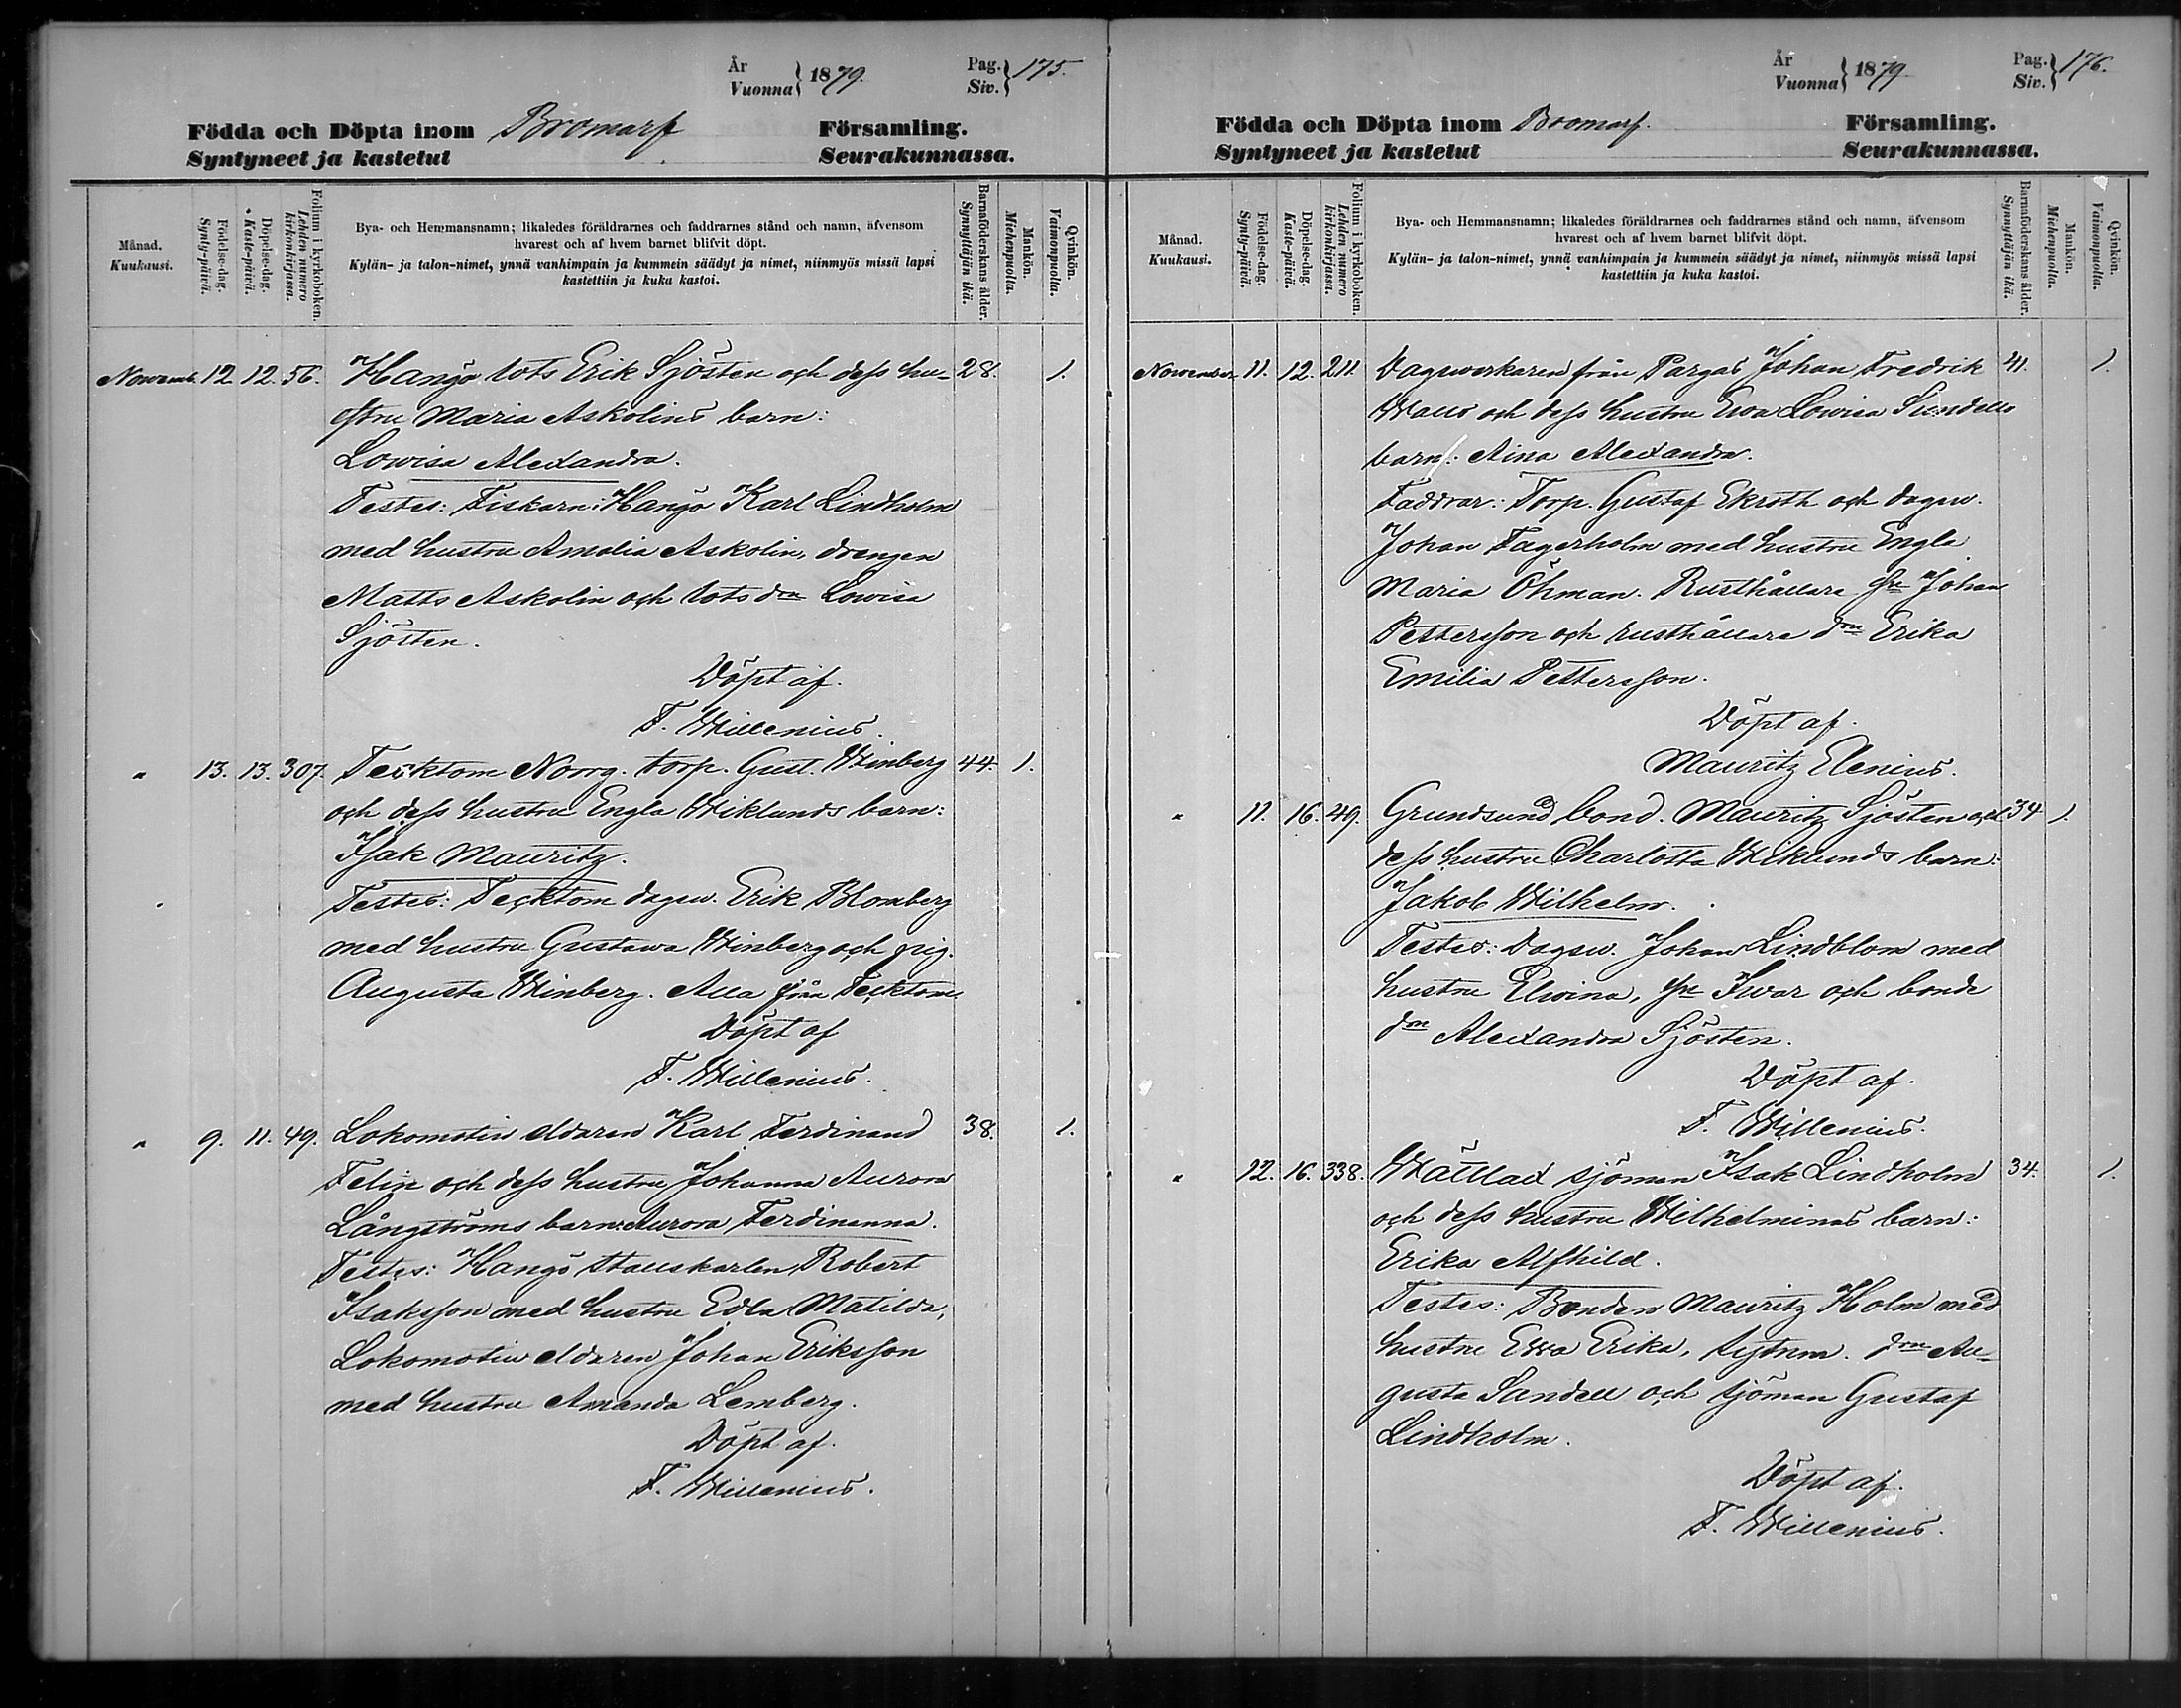 År
Vuonna } 1879.
Pag.
Siv. } 175.
Födda och Döpta inom Bromarf Församling.
Syntyneet ja kastetut Seurakunnassa.
Månad.
Kuukausi.
Födelse-dag.
Synty-päivä.
Döpelse-dag.
Kaste-päivä.
Folium i kyrkoboken.
Lehden numero
kirkonkirjassa.
Bya- och Hemmansnamn; likaledes föräldrarnes och faddrarnes stånd och namn, äfvensom
hvarest och af hvem barnet blifvit döpt.
Kylän- ja talon-nimet, ynnä vanhimpain ja kummein säädyt ja nimet, niinmyös missä lapsi
kastettiin ja kuka kastoi.
Barnaföderskans ålder.
Synnyttäjän ikä.
Mankön.
Miehenpuolia.
Qvinkön.
Vaimonpuolia.
Novemb. 12. 12. 56. Hangö lots Erik Sjösten och dess hu- 28. 1.
stru Maria Askolins barn:
Lowisa Alexandra.
Testes: Fiskarn i Hangö Karl Lindholm
med hustru Amalia Askolin, drengen
Matts Askolin och lots drn Lowisa
Sjösten.
Döpt af.
F. Willenius.
" 13. 13. 307. Tecktom Norrg. torp. Gust. Winberg 44. 1.
och dess hustru Engla Wiklunds barn:
Isak Mauritz.
Testes: Tecktom dagsv. Erik Blomberg
med hustru Gustava Winberg och pig.
Augusta Winberg. Alla från Tecktom.
Döpt af
F. Willenius.
" 9. 11. 49. Lokomotiv eldaren Karl Ferdinand 38. 1.
Felin och dess hustru Johanna Aurora
Långströms barn: Aurora Ferdinanna.
Testes: Hangö stallskarlen Robert
Isaksson med hustru Edla Matilda,
Lokomotiv eldaren Johan Eriksson
med hustru Amanda Lemberg.
Döpt af.
F. Willenius.
År
Vuonna } 1879
Pag.
Siv. } 176.
Födda och Döpta inom Bromarf. Församling.
Syntyneet ja kastetut Seurakunnassa.
Månad.
Kuukausi.
Födelse-dag.
Synty-päivä.
Döpelse-dag.
Kaste-päivä.
Folium i kyrkoboken.
Lehden numero
kirkonkirjassa.
Bya- och Hemmansnamn; likaledes föräldrarnes och faddrarnes stånd och namn, äfvensom
hvarest och af hvem barnet blifvit döpt.
Kylän- ja talon-nimet, ynnä vanhimpain ja kummein säädyt ja nimet, niinmyös missä lapsi
kastettiin ja kuka kastoi.
Barnaföderskans ålder.
Synnyttäjän ikä.
Mankön.
Miehenpuolta.
Qvinkön.
Vaimonpuolta.
November 11. 12. 211. Dagsverkaren från Pargas Johan Fredrik 41. 1.
Walls och dess hustru Ewa Lowisa Sundells
barn: Aina Alexandra.
Faddrar: Torp. Gustaf Ekroth och dagsv.
Johan Fagerholm med hustru Engla
Maria Öhman. Rusthållare sne Johan
Pettersson och rusthållare drn Erika
Emilia Pettersson.
Döpt af.
Mauritz Elenius.
" 11. 16. 49. Grundsund bond. Mauritz Sjösten och 34 1.
dess hustru Charlotta Wiklunds barn:
Jakob Wilhelm.
Testes: Dagsv. Johan Lindblom med
hustru Elvina, sne Iwar och bonde
drn Alexandra Sjösten.
Döpt af.
F. Willenius.
" 12. 16. 338. Wättlax sjöman Isak Lindholm 34. 1.
och dess hustru Wilhelminas barn:
Erika Alfhild.
Testes: Bonden Mauritz Holm med
hustru Ewa Erika, drn Au-
gusta Sandell och sjöman Gustaf
Lindholm.
Döpt af.
F. Willenius.